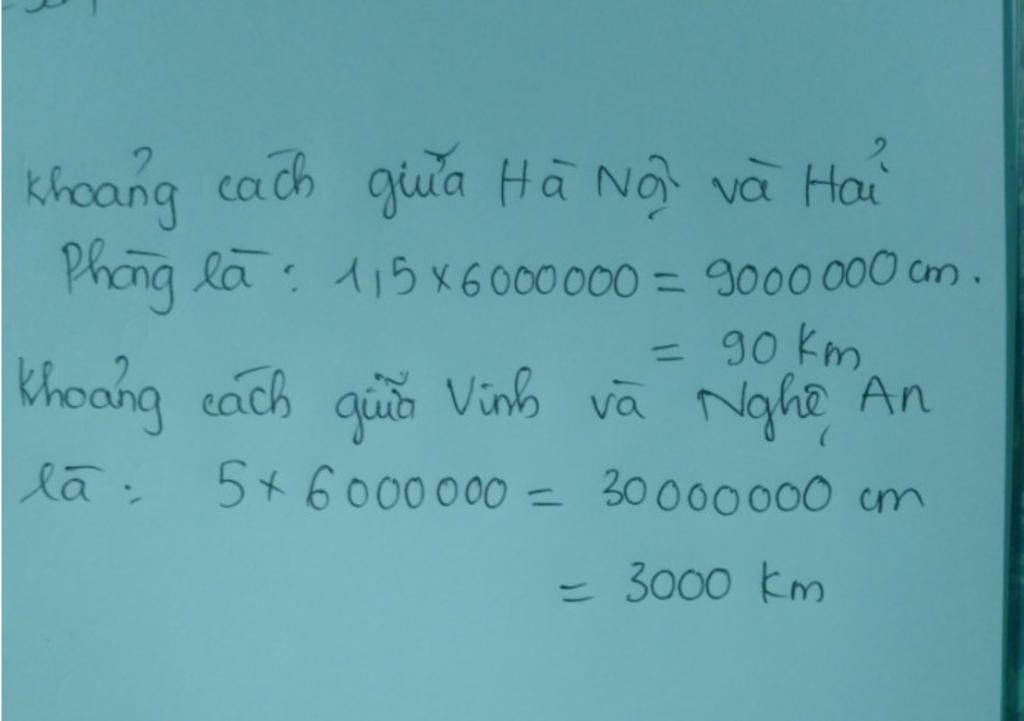 Khoảng cách giữa Hà Nội và Hải
Phòng là : 1,5 × 6000000 = 9000000 cm.
= 90 km
Khoảng cách giữa Vinh và Nghệ An
là : 5 × 6000000 = 30000000 cm
= 3000 km